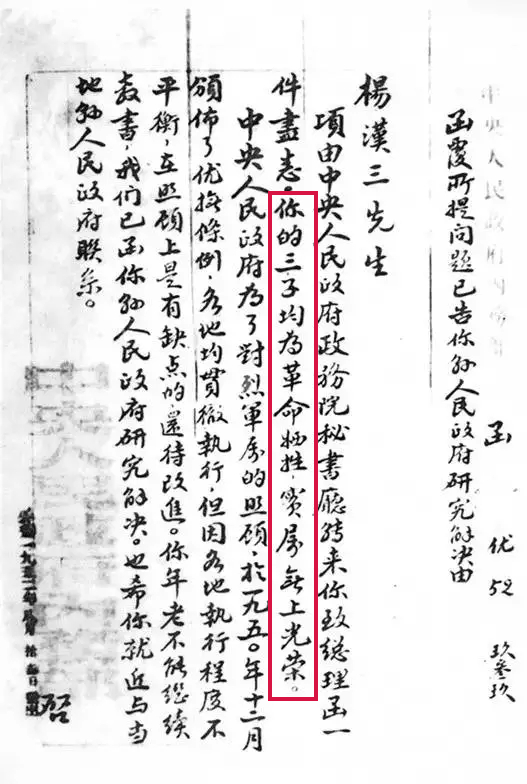 中央人民政府內務部 函 优 52 玖叁玖
函覆所提问題已告你縣人民政府研究解决由
楊漢三先生
項由中央人民政府政務院秘書廳转来你致總理函一
件盡志。你的三子均為革命牺牲,實属無上光荣。
中央人民政府為了對烈軍属的照顾,於一九五〇年十二月
頒佈了优撫條例,各地均貫徹執行,但因各地執行程度不
平衡,在照顾上是有缺点的,還待改進。你年老不能继續
教書,我们已函你縣人民政府研究解决。也希你就近与当
地縣人民政府联系。
启
一九五二年